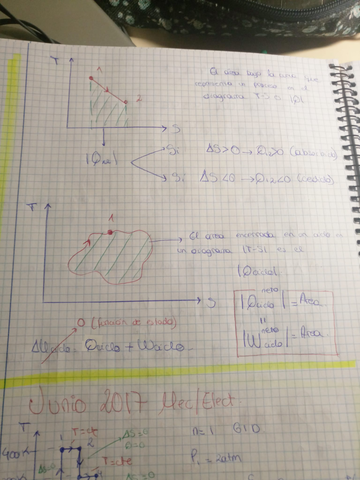 T
1
2
S
El area bajo la curva que
representa un proceso en el
diagrama T-S es |Q|.
|Q12|
Si ΔS>0 → Q12>0 (absorbido)
Si ΔS<0 → Q12<0 (cedido)
T
1
El area encerrada en un ciclo en
un diagrama (T-S) es el
|Qciclo|
S
|Qciclo neto| = Area
"
|Wciclo neto| = Area
0 (función de estado)
ΔUciclo = Qciclo + Wciclo
Junio 2017 Mec/Elect.
T
T=cte
1
2
n=1 GID
T=cte